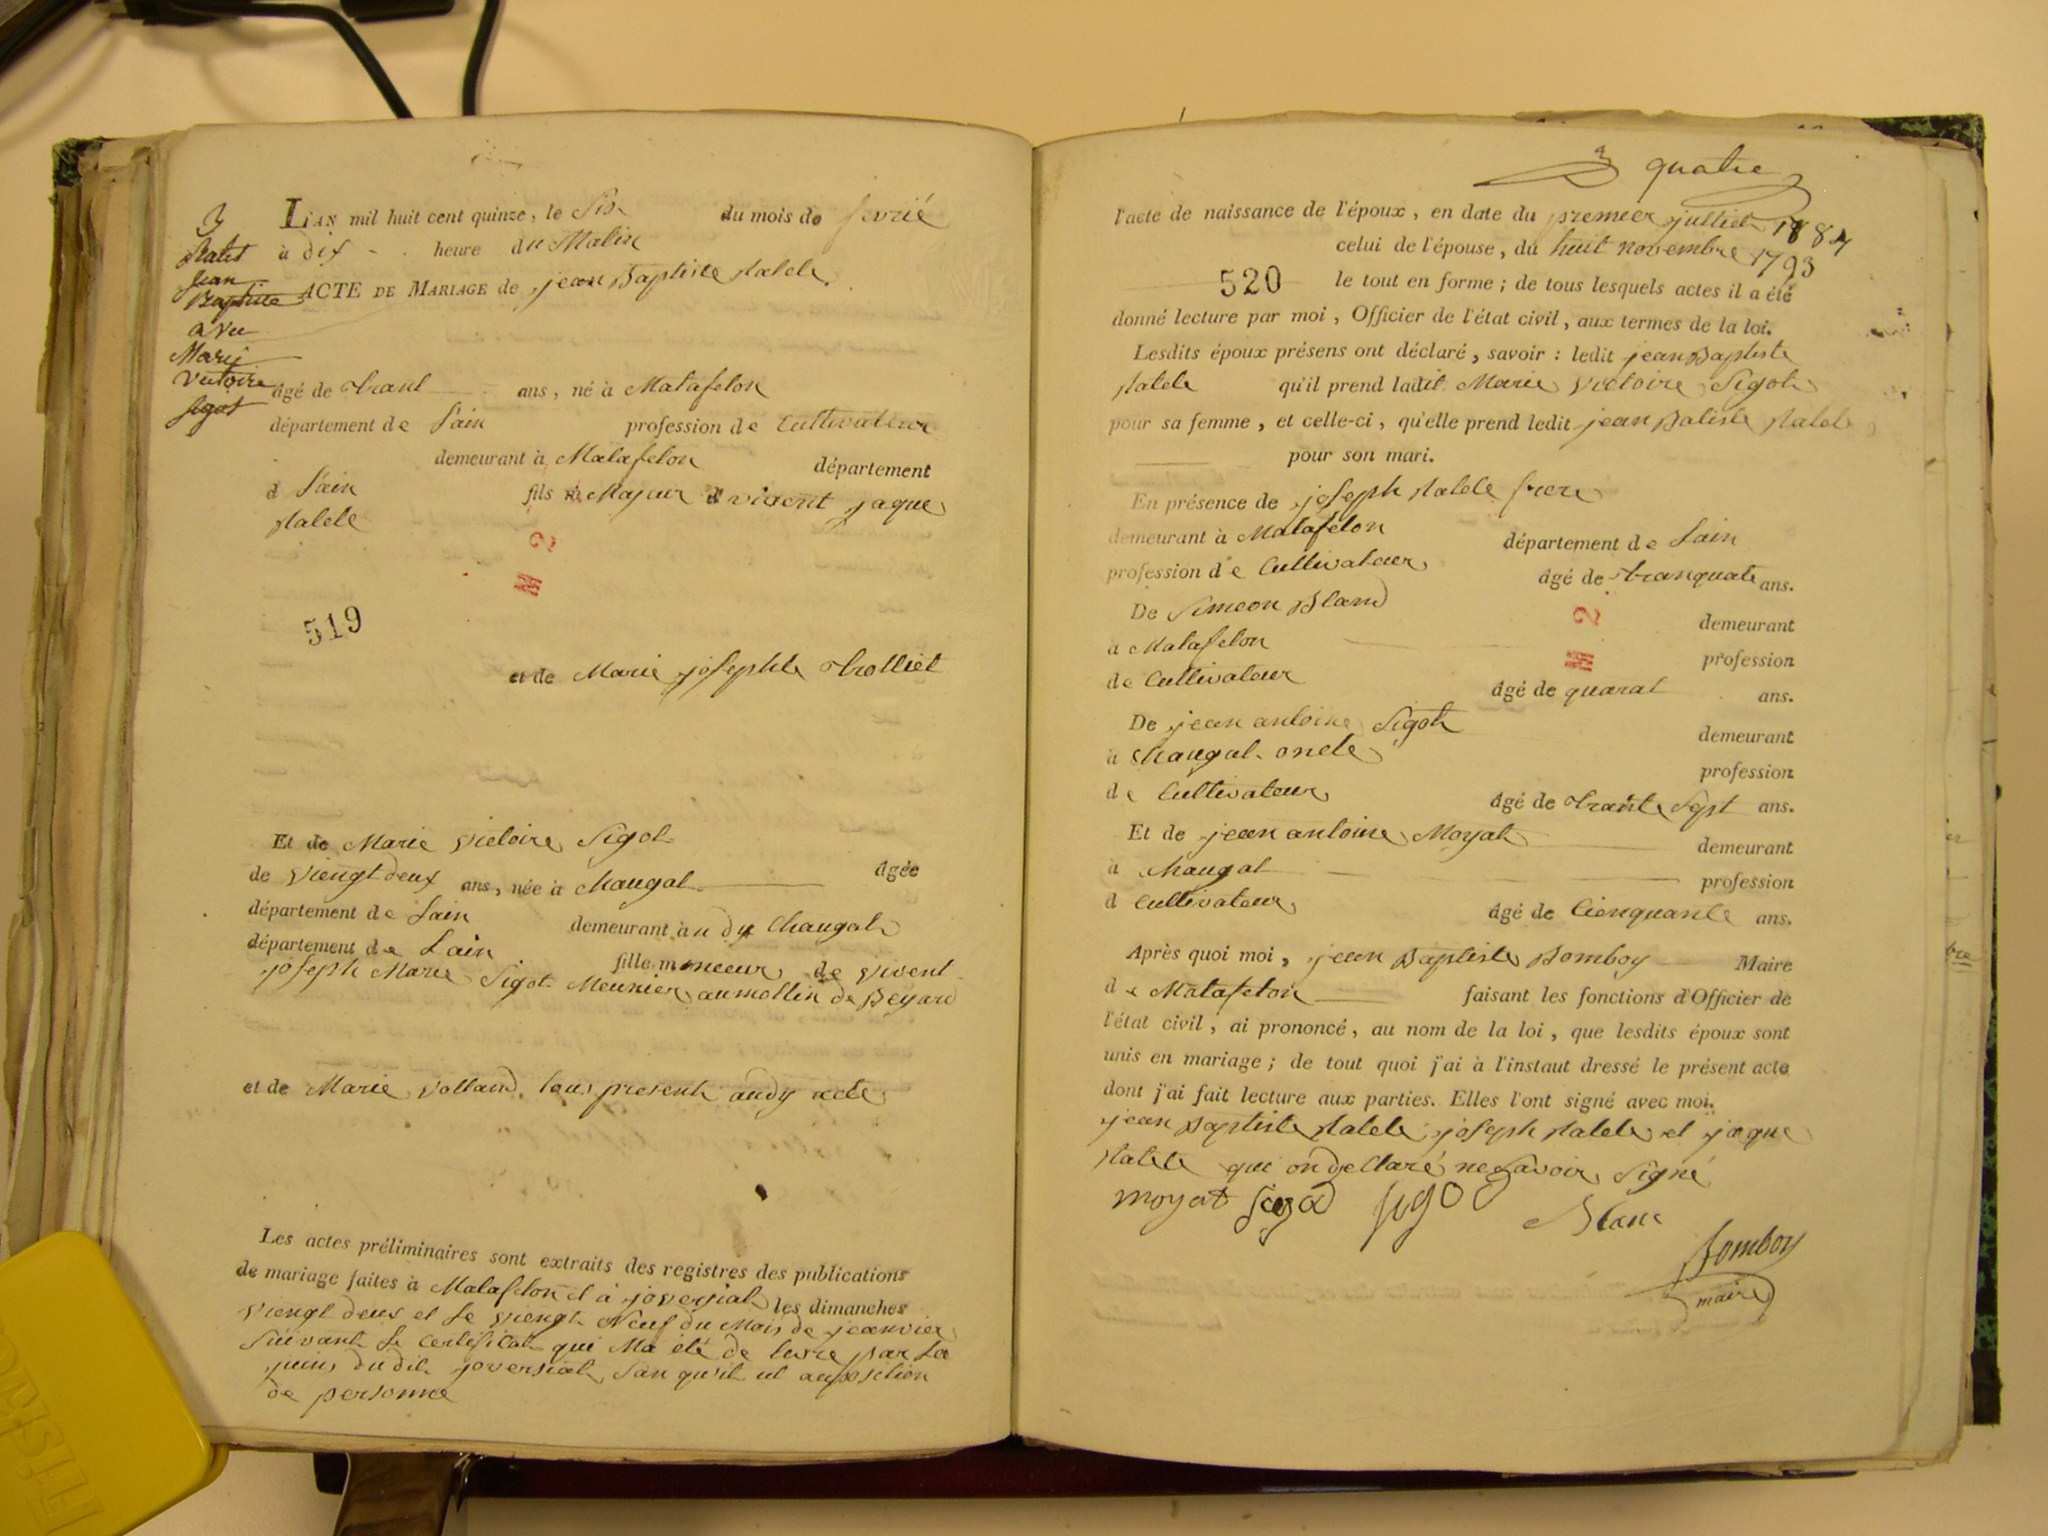 3
Jean
Baptiste
avec
Marie
Victoire
Sigot
L'AN mil huit cent quinze, le Six du mois de fevrié
à dix heure du Matin
ACTE DE MARIAGE de jean Baptiste
âgé de trant ans, né à Matafelon
département de Lain profession de Cultivateur
demeurant à Matafelon département
d Lain fils Majeur d vivent jaque
519
M 2
et de Marie josephte trolliet
Et de Marie victoire Sigot
de viengt deux ans, née à Chaugat âgée
département de Lain demeurant à u dy Chaugat
département de Lain fille mineeur de vivent
joseph Marie Sigot Meunier au mollin de Beyard
et de Marie Volland tous present audy acte
Les actes préliminaires sont extraits des registres des publications
de mariage faites à Matafelon et à joversiat les dimanches
viengt deux et le viengt Neuf du Mois de jeanvier
Suivant le Certificat qui Ma été de livré par La
du dit joversiat San qu'il
de personne
3 quatre
l'acte de naissance de l'époux, en date du premier julliet
celui de l'épouse, du huit novembre 1793
520 le tout en forme; de tous lesquels actes il a été
donné lecture par moi, Officier de l'état civil, aux termes de la loi.
Lesdits époux présens ont déclaré, savoir: ledit jean Baptiste
qu'il prend ladit Marie victoire Sigot
pour sa femme, et celle-ci, qu'elle prend ledit jean Batiste
pour son mari.
En présence de joseph frere
demeurant à Matafelon département de Lain
profession de Cultivateur âgé de tranquate ans.
De Simeon Bland demeurant
à Matafelon profession
de Cultivateur âgé de quarat ans.
M 2
De jean antoine Sigot demeurant
à Chaugat oncle profession
de Cultivateur âgé de trante Sept ans.
Et de jean antoine Moyat demeurant
à Chaugat profession
d Cultivateur âgé de Cienquante ans.
Après quoi moi, jean Baptiste Bomboy Maire
de Matafelon faisant les fonctions d'Officier de
l'état civil, ai prononcé, au nom de la loi, que lesdits époux sont
unis en mariage; de tout quoi j'ai à l'instant dressé le présent acte
dont j'ai fait lecture aux parties. Elles l'ont signé avec moi.
jean Baptiste joseph et jaque
qui on dellaré ne Savoir Signé
moyat Sigot Blanc
Bomboy
maire